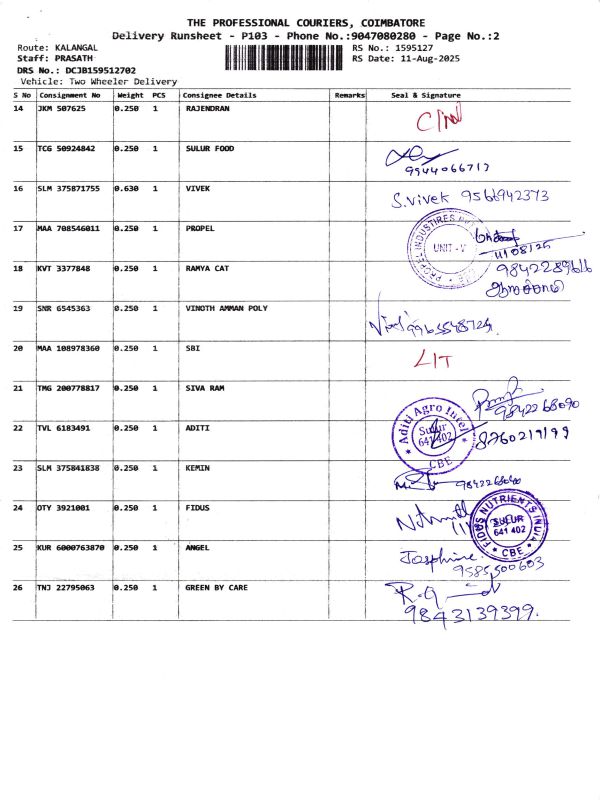 THE PROFESSIONAL COURIERS, COIMBATORE
Delivery Runsheet - P103 - Phone No.:9047080280 - Page No.:2
Route: KALANGAL
RS No.: 1595127
Staff: PRASATH
RS Date: 11-Aug-2025
DRS No.: DCJB159512702
Vehicle: Two Wheeler Delivery
S No Consignment No Weight PCS Consignee Details Remarks Seal & Signature
14 JKM 507625 0.250 1 RAJENDRAN
15 TCG 50924842 0.250 1 SULUR FOOD
9944066717
16 SLM 375871755 0.630 1 VIVEK
S.Vivek 9566942373
17 MAA 708546011 0.250 1 PROPEL
PROPEL INDUSTIRES
UNIT - V
11/08/25
18 KVT 3377848 0.250 1 RAMYA CAT
9842289616
19 SNR 6545363 0.250 1 VINOTH AMMAN POLY
20 MAA 108978360 0.250 1 SBI
21 TMG 200778817 0.250 1 SIVA RAM
9842268090
22 TVL 6183491 0.250 1 ADITI
Aditi Agro Intel
Sulur
641 402
CBE
8760219199
23 SLM 375841838 0.250 1 KEMIN
24 OTY 3921001 0.250 1 FIDUS
FIDUS NUTRIENTS INDIA
SULUR
641 402
CBE
25 KUR 6000763870 0.250 1 ANGEL
Josphine
9585500603
26 TNJ 22795063 0.250 1 GREEN BY CARE
9843139399.